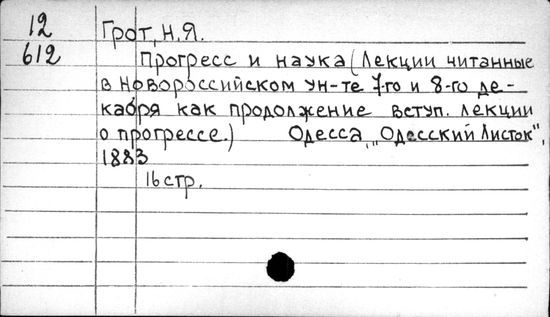 12 Грот, Н.Я.
612 Прогресс и наука (Лекции читанные
в Новороссийском ун-те 7-го и 8-го де-
кабря как продолжение вступ. лекции
о прогрессе.) Одесса, "Одесский Листок",
1883
16 стр.